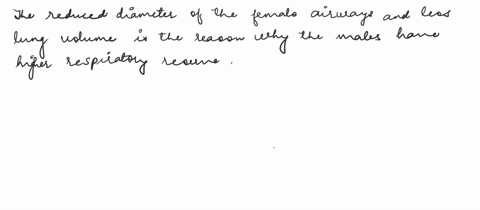 The reduced diameter of the female airways and less
lung volume is the reason why the males have
higher respiratory reserve .